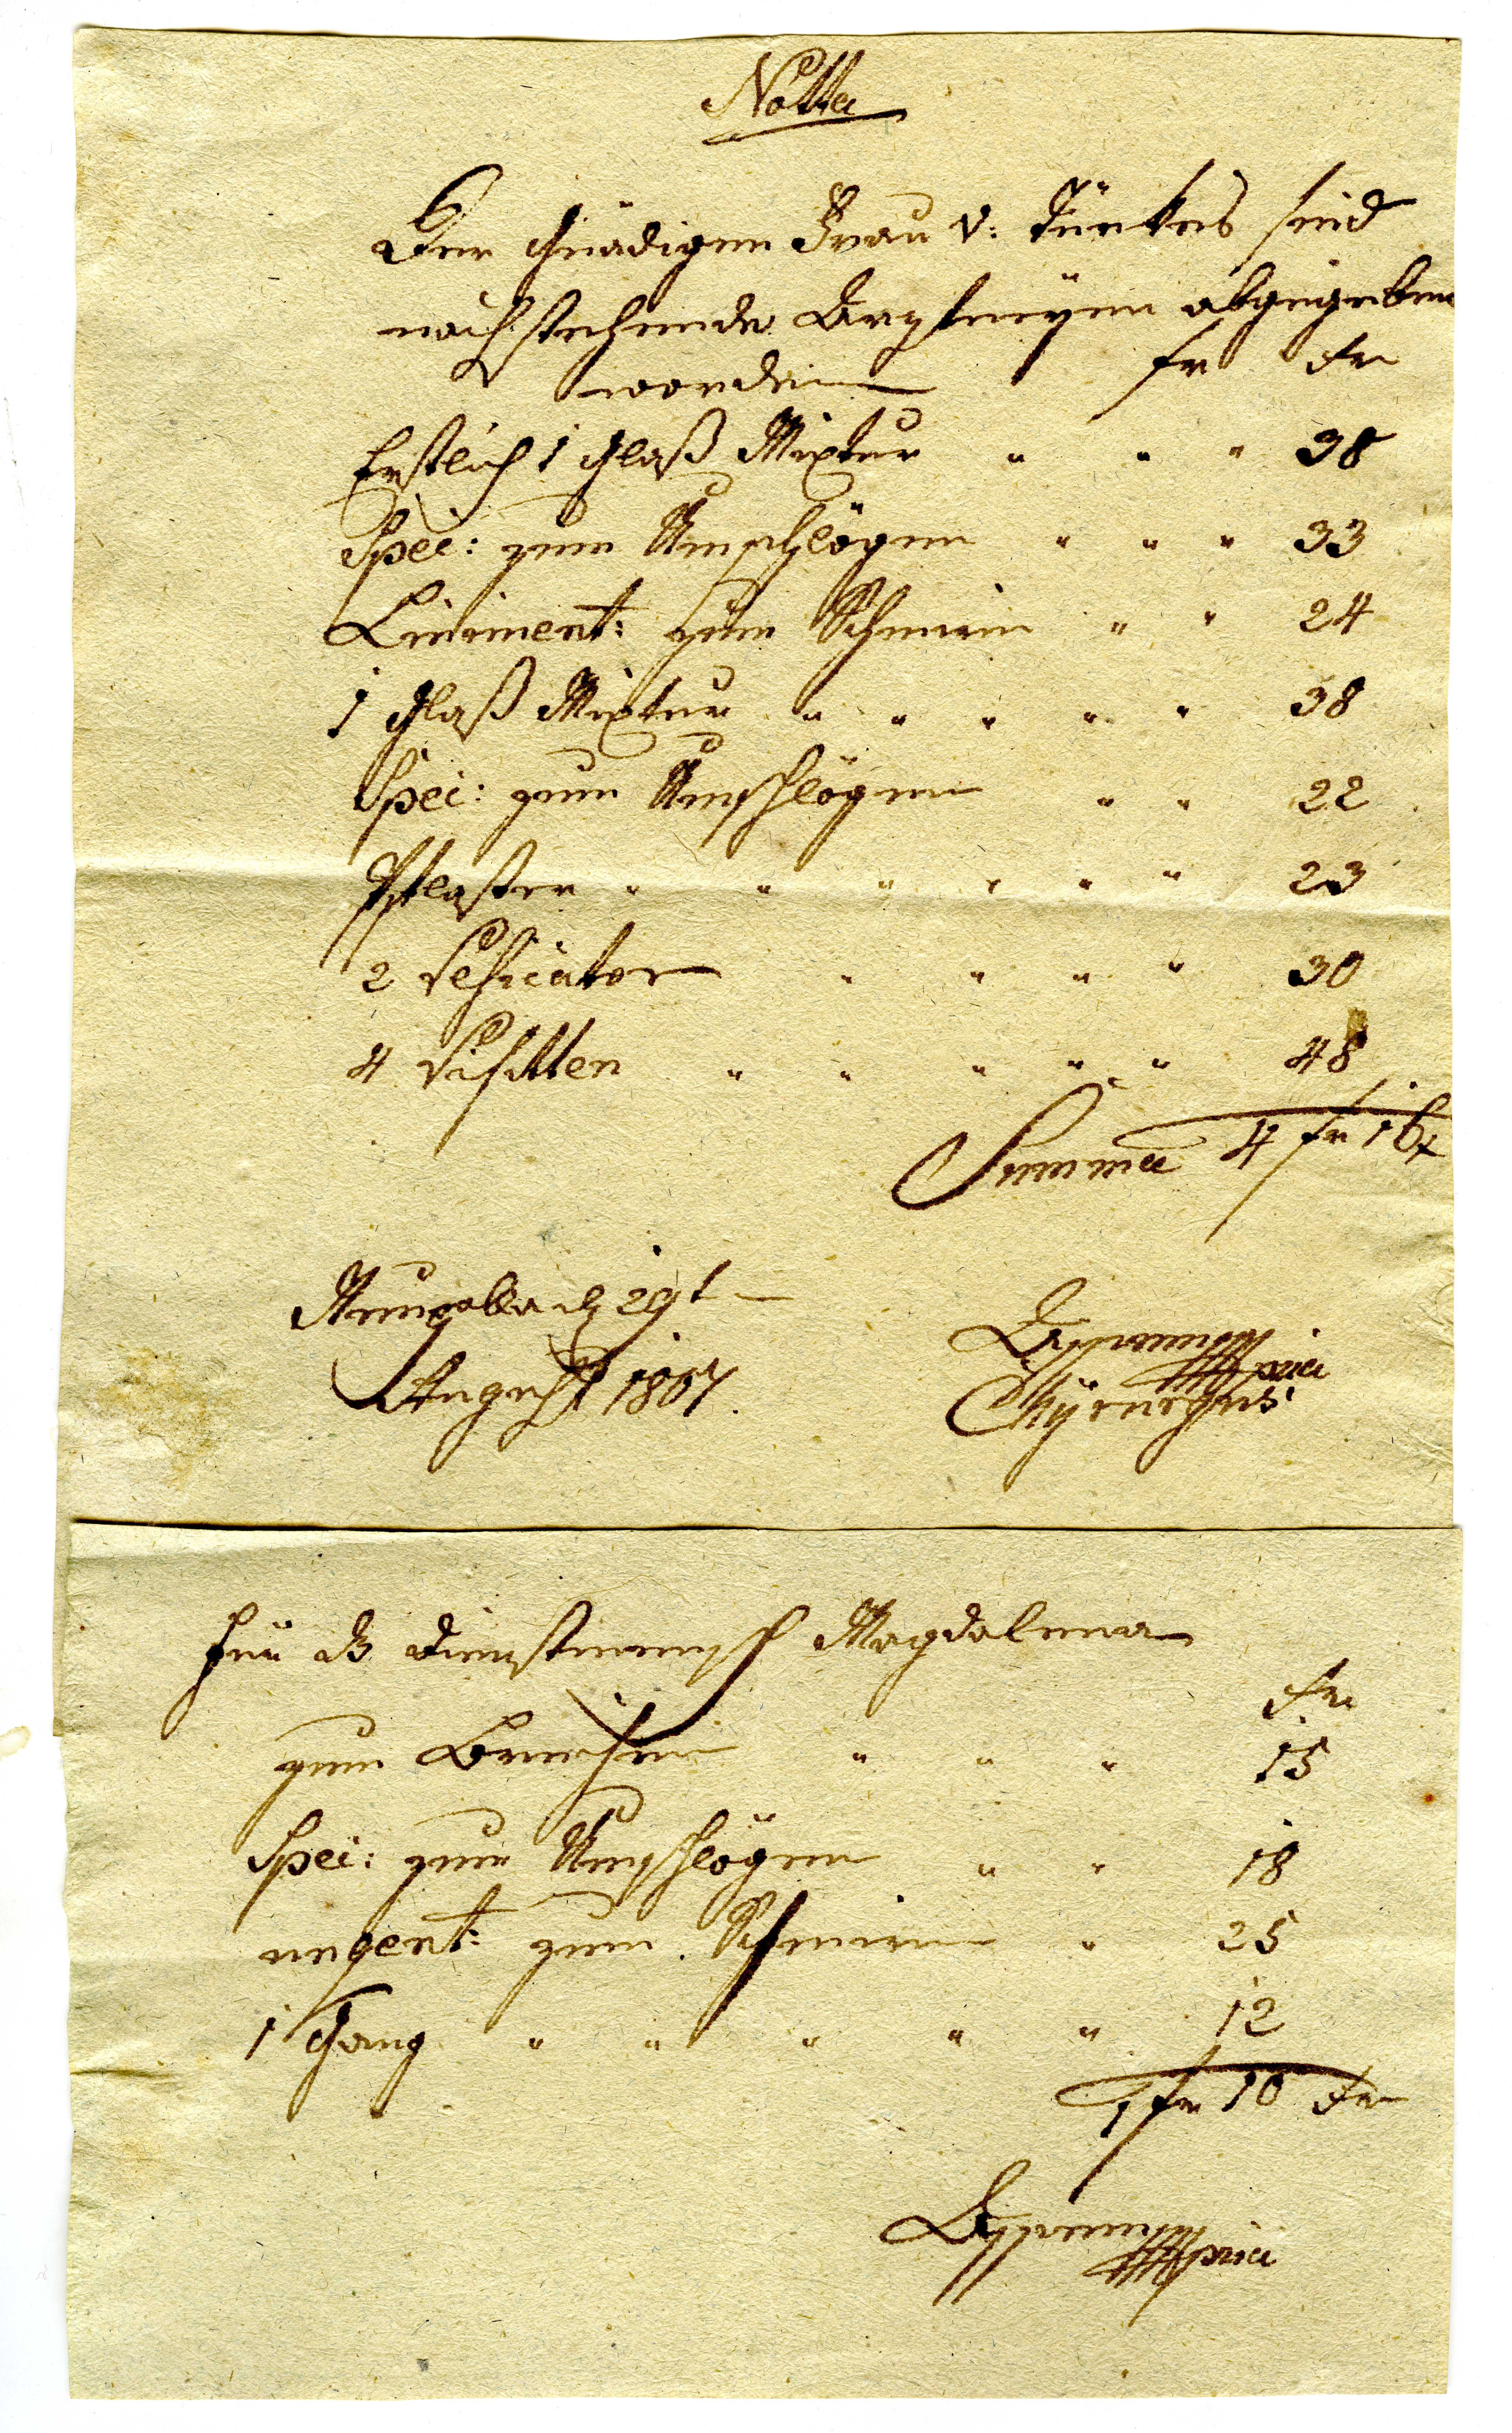 Notta
Der Gnädigen Frau v: Tünkes sind
nachstehende Arzneÿen abgegeben
worden fr xr
Erstlich 1 Glaß Mixtur " " " 38
Spec: zum Umschlägen " " " 33
Liniment: zum Schmirn " " 24
1 Glaß Mixtur " " " " " 38
Spec: zum Umschlägen " " 22
Pflaster " " " " " " 23
2 Vesicator " " " " 30
4 Visitten " " " " " 48
Summa 4 fr 16 x
29t
August 1807.
Chÿrurgus
Für das Dienstmensch Magdalena
xr
zum Brechen " " " 15
Spec: zum Umschlägen " " 18
ungent: zum Schmiren " 25
1 Gang " " " " " 12
1 fr 10 xr